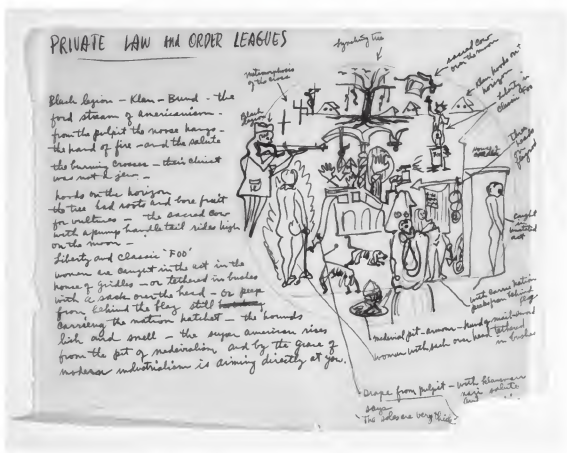 PRIVATE LAW AND ORDER LEAGUES
Black Legion – Klan – Bund – the
ford stream of americanism.
from the pulpit the noose hangs –
the hand of fire – and the salute
the burning crosses – their christ
was not a jew –
hoods on the horizon
the tree had roots and bore fruit
for vultures – the sacred cow
with a pump handle tail rides high
on the moon –
Liberty and classic "FOO"
women are caught in the act in the
house of girdles – or tethered in bushes
with a sack over the head – or peep
from behind the flag still
carrying the nation hatchet – the hounds
lick and smell – the super american rises
from the pit of medievalism, and by the grace of
modern industrialism is aiming directly at you.
lynching tree
sacred cow
over the moon
klan hoods on
horizon
Liberty in
classic Foo
metamorphosis
of the cross
Black
Legion
caught
act
with carrie nation
peeks from behind
flag
medieval pit – armor –
woman with sack over head tethered
in bushes
Drape from pulpit – with klansman
nazi salute
says
"The soles are very thick."